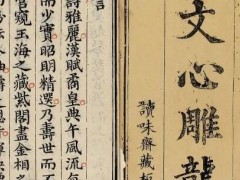 文心雕龍
讀味齋藏板
言
詩雅麗漢賦矞皇典午風流
而少實昭明精選乃壽世而不
窺玉海之藏紫閣金相